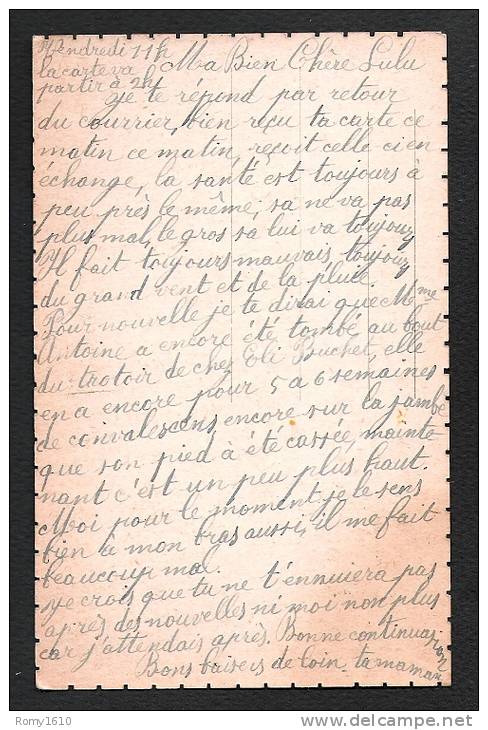 Vendredi 11h
la carte va
partir à 2h
Ma Bien Chère Lulu
je te répond par retour
du courrier, bien reçu ta carte ce
matin ce matin, reçoit celle ci en
échange, la santé est toujours à
peu près le même, sa ne va pas
plus mal, le gros sa lui va toujouz
Il fait toujours mauvais, toujouz
du grand vent et de la pluie.
Pour nouvelle je te dirai que Mme
Antoine a encore été tombé au bout
du trotoir de chez Eli Buchet, elle
en a encore pour 5 a 6 semaines
de convalescens encore sur la jambe
que son pied à été cassée, mainte
nant c'est un peu plus haut.
Moi pour le moment je le sens
bien à mon bras aussi, il me fait
beaucoup mal.
Je crois que tu ne t'ennuiera pas
après des nouvelles ni moi non plus
car j'attendais après. Bonne continuation
Bons baisers de loin, ta maman
Romy1610
www.delcampe.net